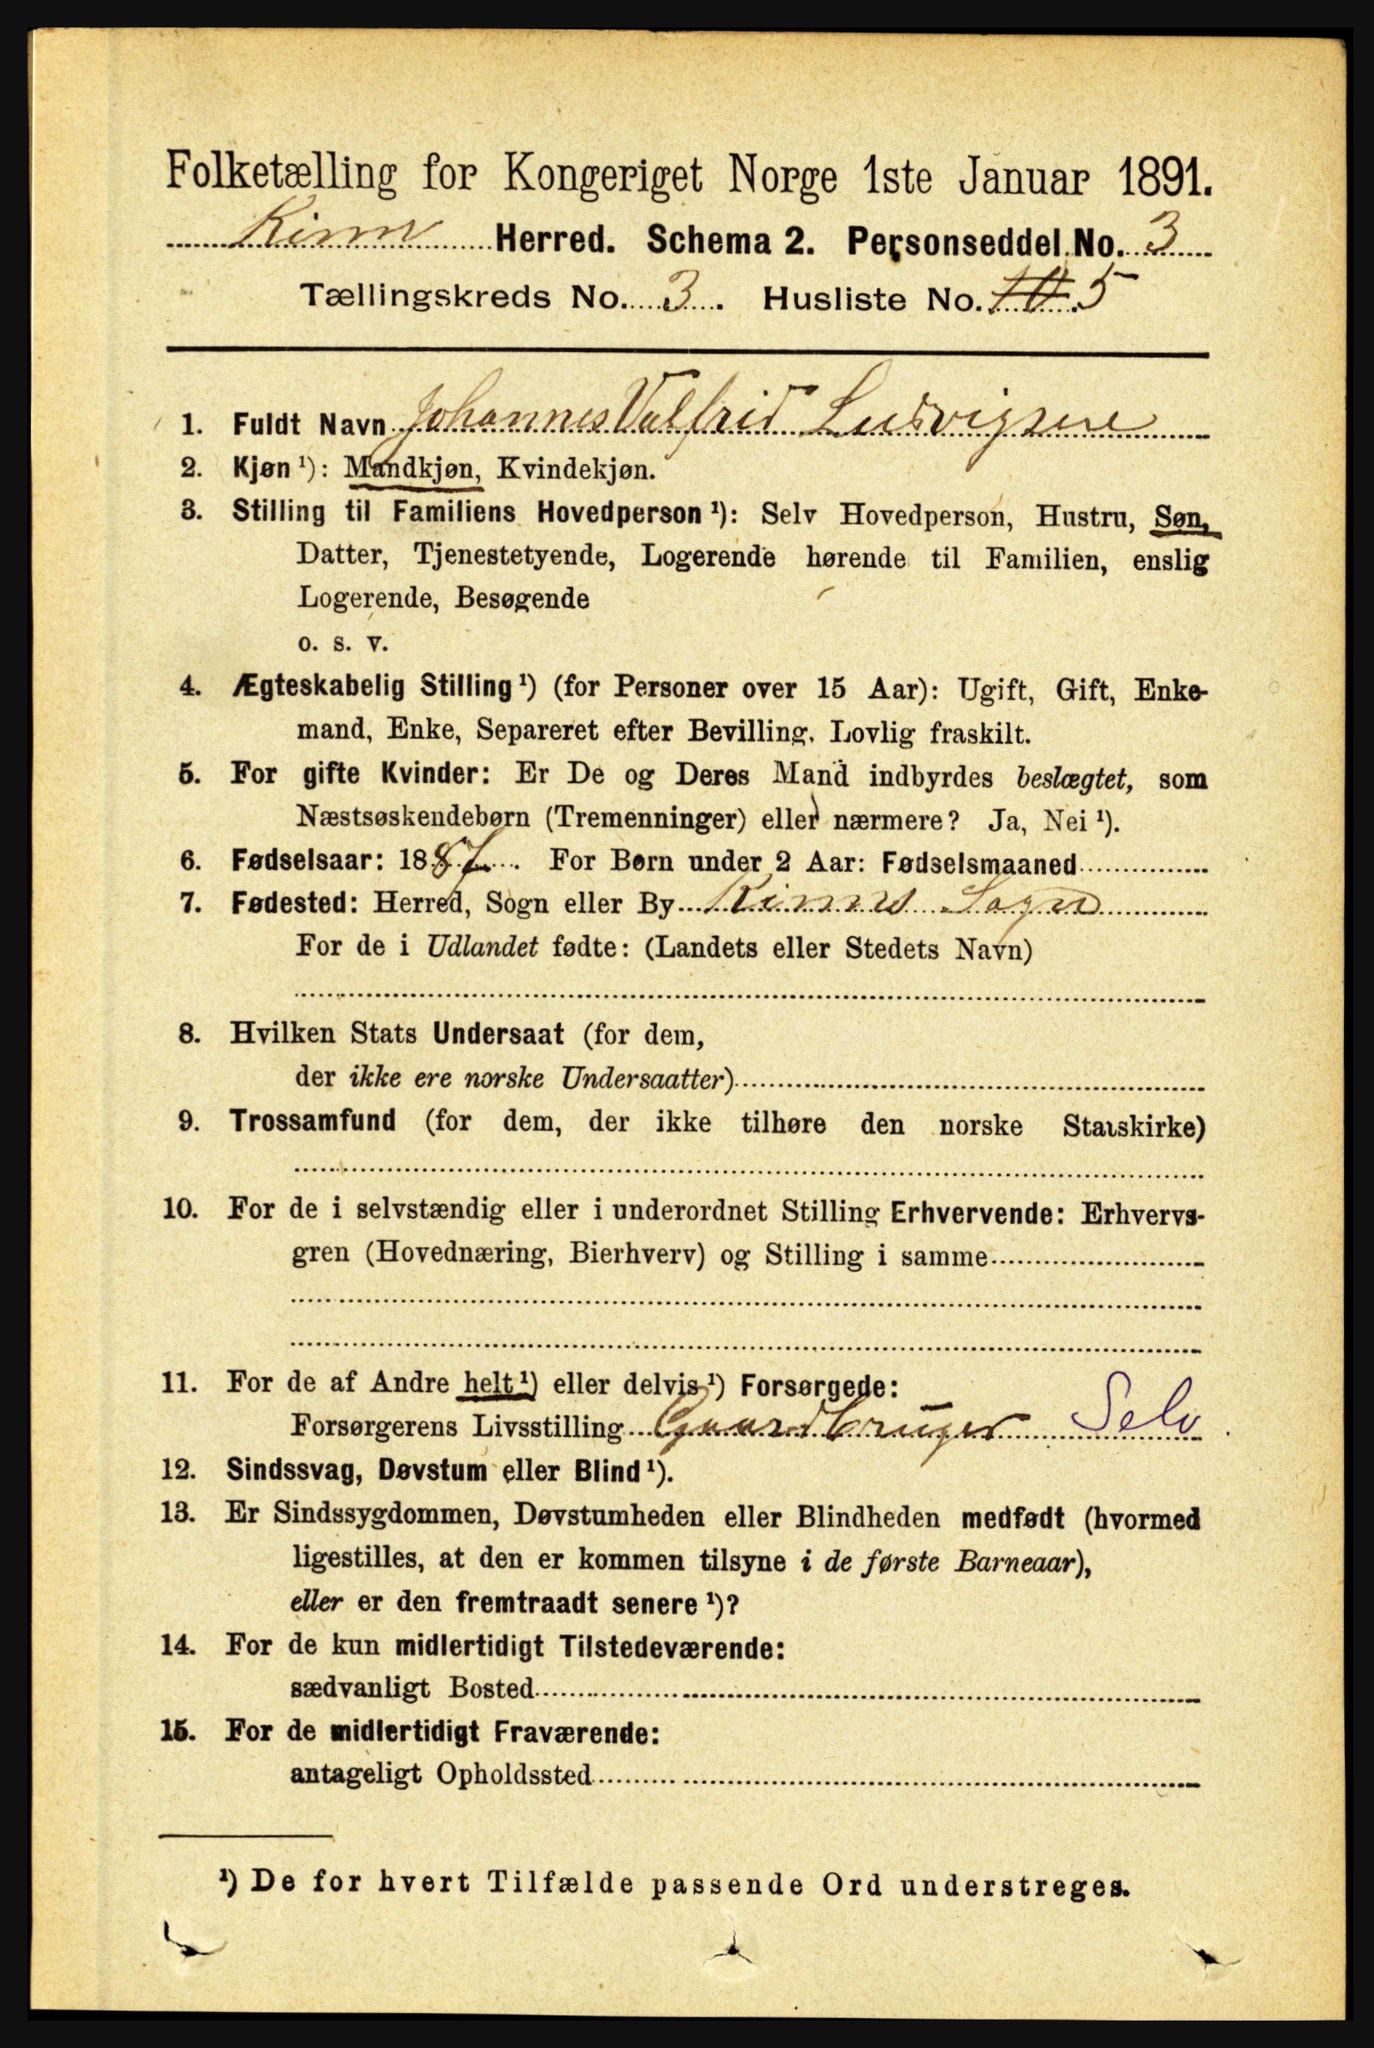 Folketælling for Kongeriget Norge 1ste Januar 1891.
Kinn Herred. Schema 2. Personseddel No. 3
Tællingskreds No. 3. Husliste No. 10 5
1. Fuldt Navn Johannes Valfrid Ludvigsen
2. Kjøn ¹): Mandkjøn, Kvindekjøn.
3. Stilling til Familiens Hovedperson ¹): Selv Hovedperson, Hustru, Søn,
Datter, Tjenestetyende, Logerende hørende til Familien, enslig
Logerende, Besøgende
o. s. v.
4. Ægteskabelig Stilling ¹) (for Personer over 15 Aar): Ugift, Gift, Enke-
mand, Enke, Separeret efter Bevilling. Lovlig fraskilt.
5. For gifte Kvinder: Er De og Deres Mand indbyrdes beslægtet, som
Næstsøskendebørn (Tremenninger) eller nærmere? Ja, Nei ¹).
6. Fødselsaar: 1887. For Børn under 2 Aar: Fødselsmaaned
7. Fødested: Herred, Sogn eller By Kinns Sogn
For de i Udlandet fødte: (Landets eller Stedets Navn)
8. Hvilken Stats Undersaat (for dem,
der ikke ere norske Undersaatter)
9. Trossamfund (for dem, der ikke tilhøre den norske Statskirke)
10. For de i selvstændig eller i underordnet Stilling Erhvervende: Erhvervs-
gren (Hovednæring, Bierhverv) og Stilling i samme
11. For de af Andre helt ¹) eller delvis ¹) Forsørgede:
Forsørgerens Livsstilling Gaardbruger Selv
12. Sindssvag, Døvstum eller Blind ¹).
13. Er Sindssygdommen, Døvstumheden eller Blindheden medfødt (hvormed
ligestilles, at den er kommen tilsyne i de første Barneaar),
eller er den fremtraadt senere ¹)?
14. For de kun midlertidigt Tilstedeværende:
sædvanligt Bosted
15. For de midlertidigt Fraværende:
antageligt Opholdssted
¹) De for hvert Tilfælde passende Ord understreges.